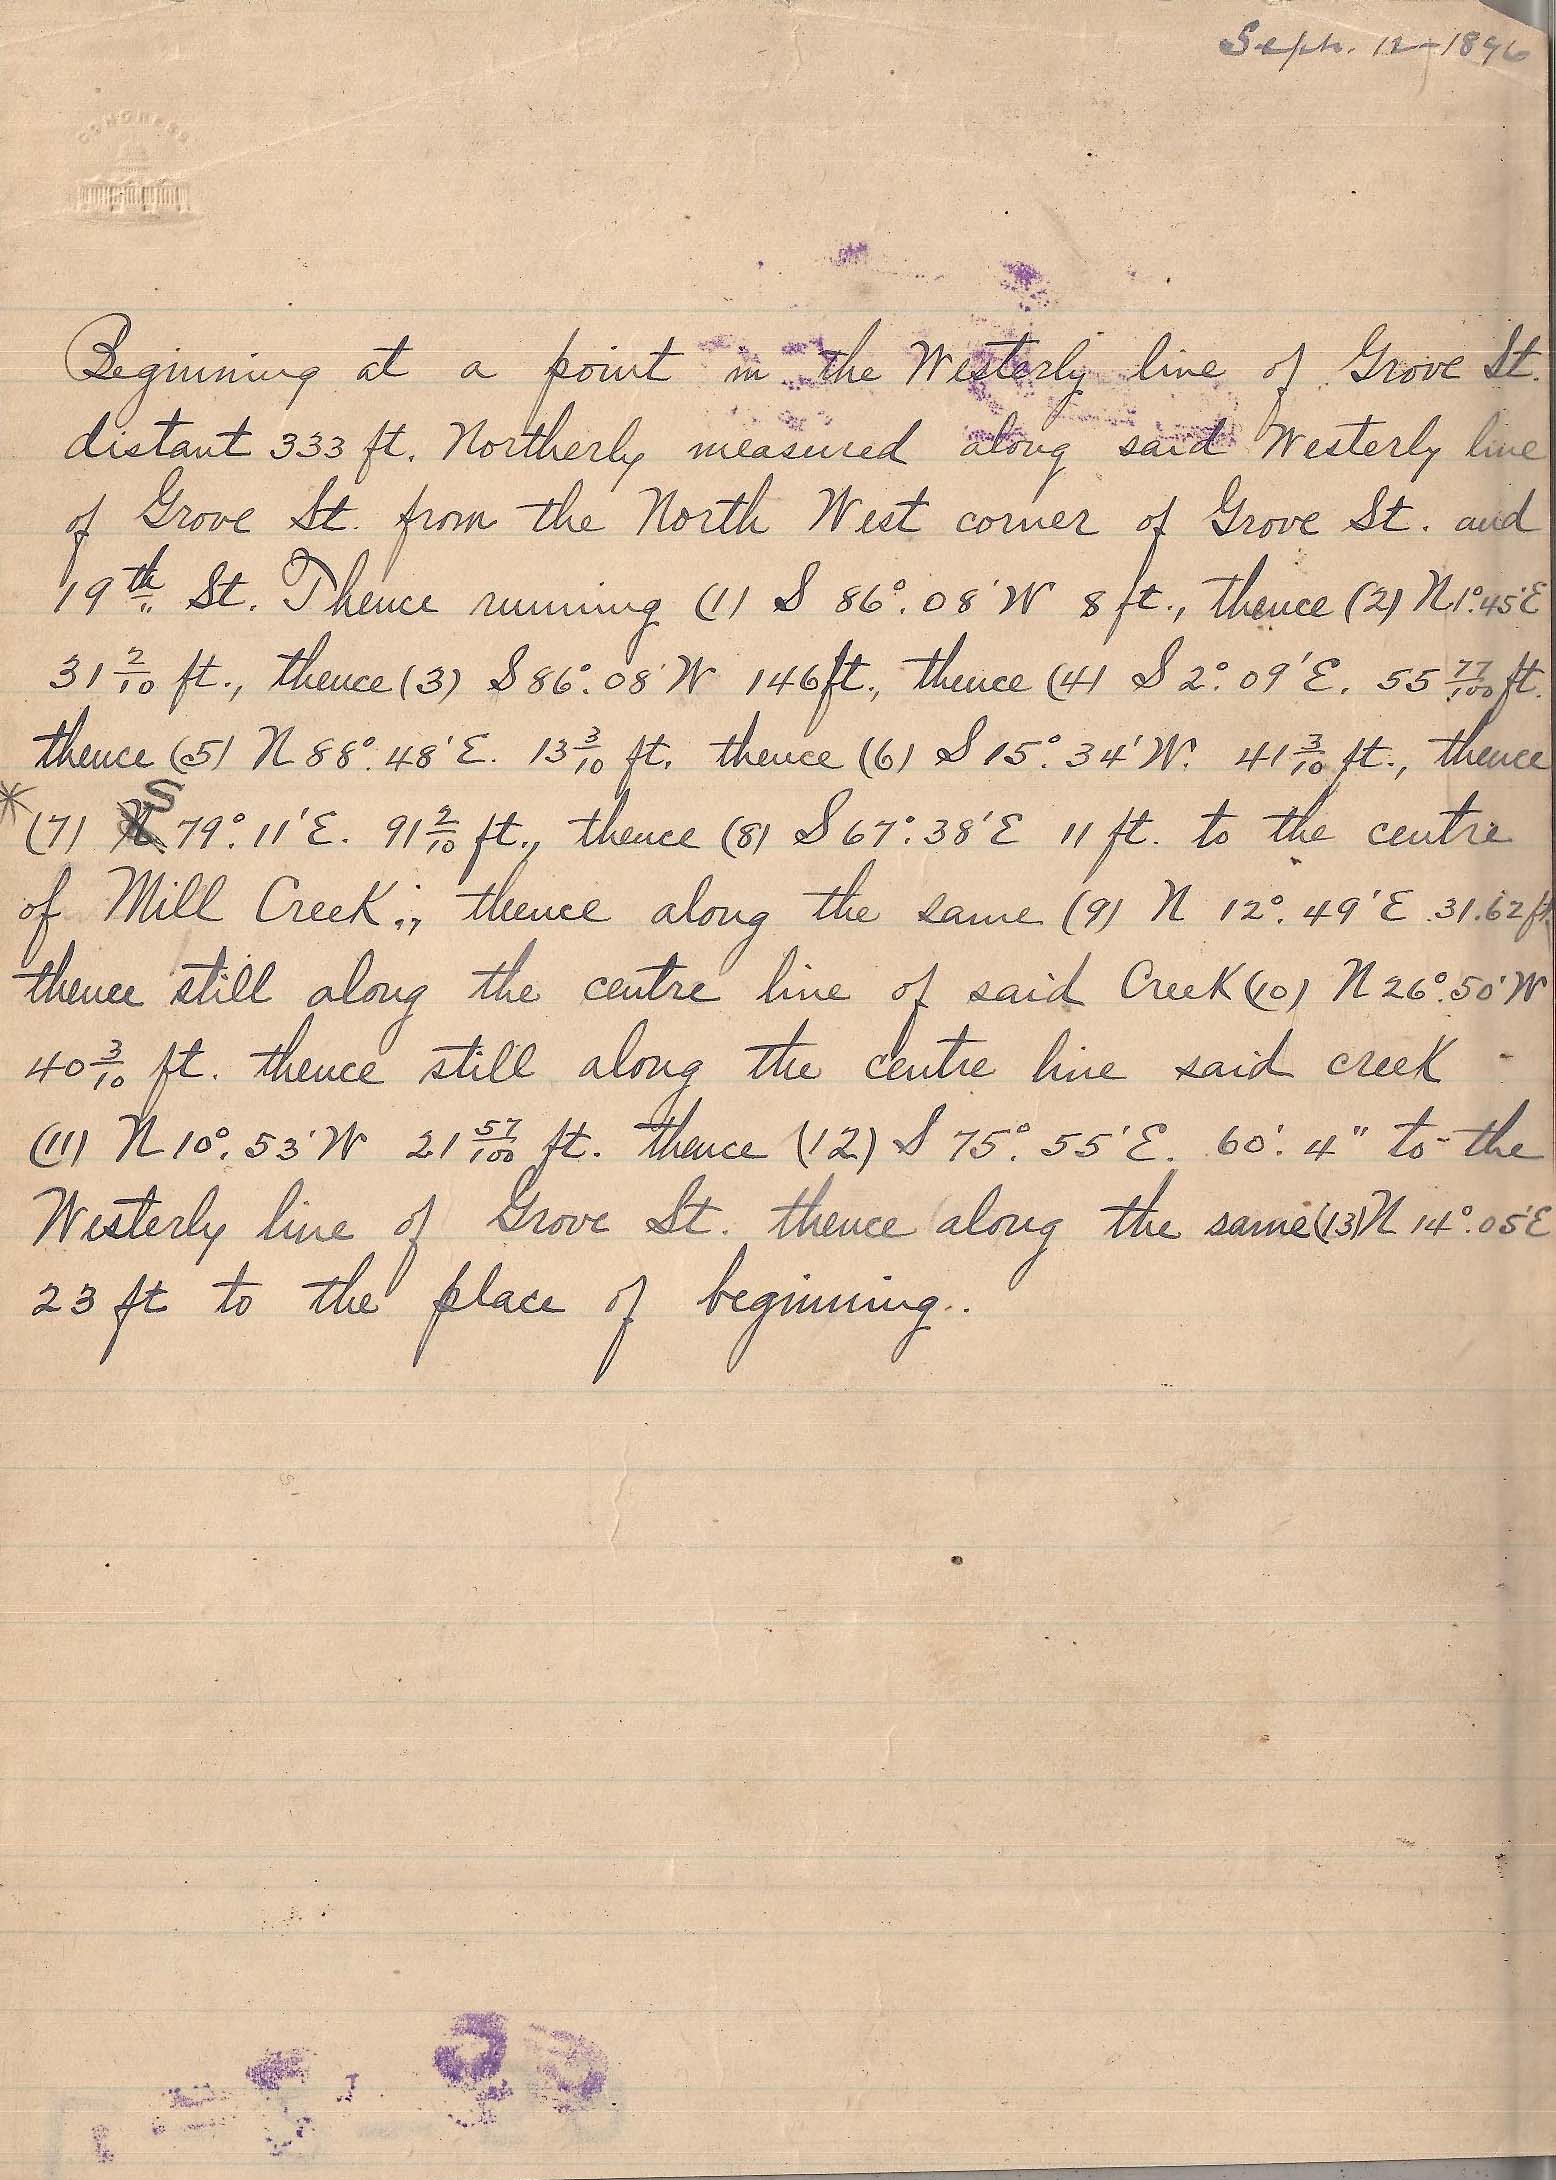 Sept. 12-1896
CONGRESS
Beginning at a point in the Westerly line of Grove St.
distant 333 ft. Northerly measured along said Westerly line
of Grove St. from the North West corner of Grove St. and
19th St. Thence running (1) S 86°.08' W 8 ft., thence (2) N 1°.45' E
31 2/10 ft., thence (3) S 86°.08' W 146 ft., thence (4) S 2°.09' E. 55 77/100 ft.
thence (5) N 88°.48' E. 13 3/10 ft. thence (6) S 15°.34' W. 41 3/10 ft., thence
* (7) S 79°.11' E. 91 2/10 ft., thence (8) S 67°.38' E 11 ft. to the centre
of Mill Creek.; thence along the same (9) N 12°.49' E 31.62 ft.
thence still along the centre line of said Creek (10) N 26°.50' W
40 3/10 ft. thence still along the centre line said creek
(11) N 10°.53' W 21 57/100 ft. thence (12) S 75°.55' E. 60'.4" to the
Westerly line of Grove St. thence along the same (13) N 14°.05' E
23 ft to the place of beginning..